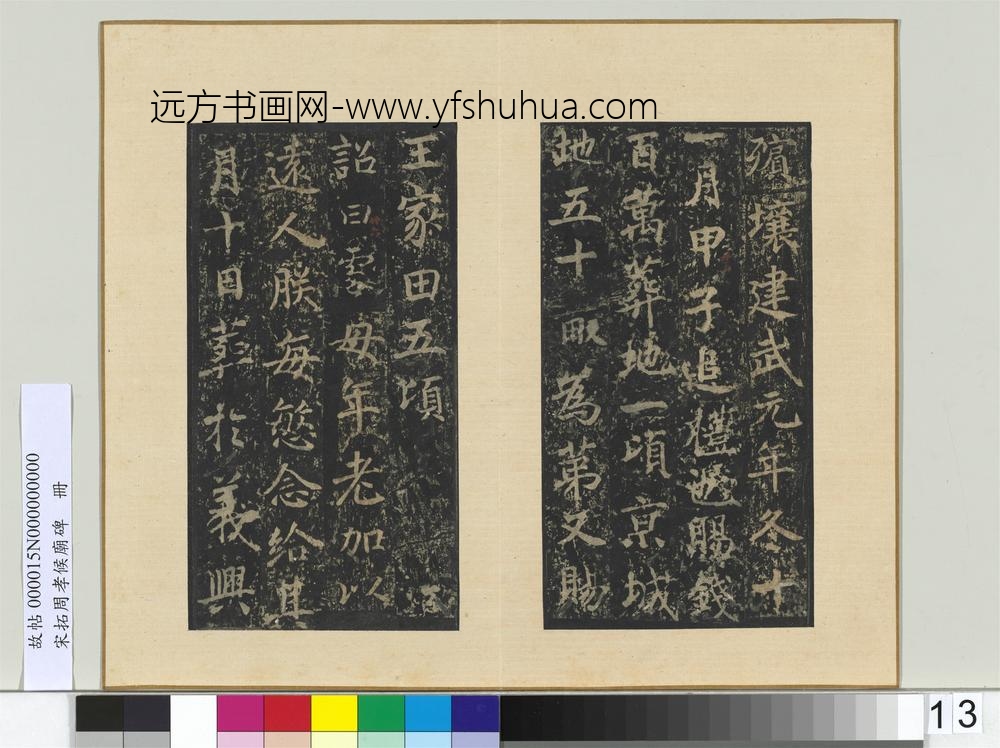 远方书画网-www.yfshuhua.com
壤建武元年冬十
一月甲子追贈賜錢
百萬葬地一頃京城
地五十畝為第又賜
王家田五頃
詔曰處母年老加以
遠人朕每愍念給其
月十日葬於義興
故帖 000015N000000000
宋拓周孝候廟碑 冊
13